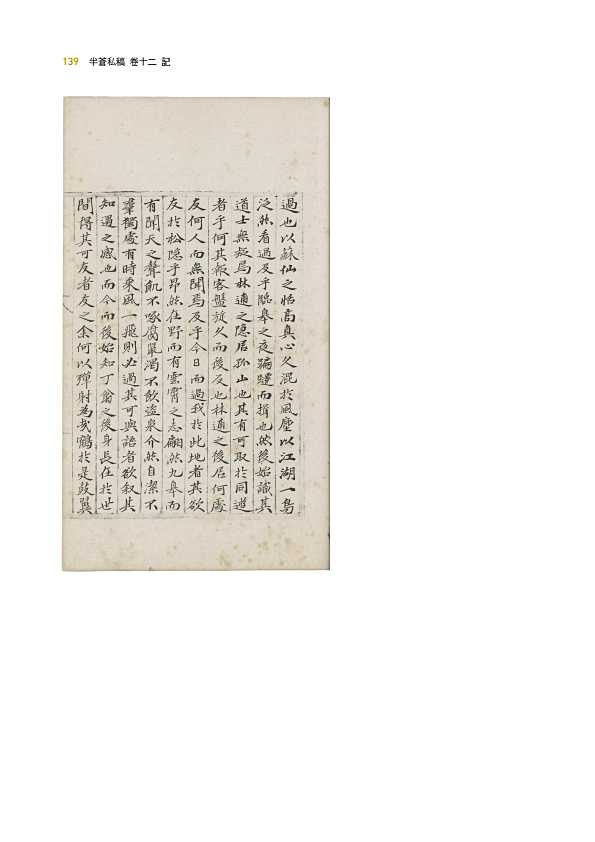 139 半蒼私稿 卷十二 記
過也以蘇仙之恬高真心久混於風塵以江湖一鳥
泛然看過及乎臨皋之夜蹁躚而揖也然後始識其
道士無疑爲林逋之隱居孤山也其有可取於同遊
者乎何其報客盤旋久而後反也林逋之後居何處
友何人而無聞焉及乎今日而過我於此地者其欲
友於松隱乎昂然在野而有雲霄之志翩然九皋而
有聞天之聲飢不啄腐鼠渴不飲盜泉介然自潔不
羣獨處有時乘風一擧則必過其可與語者欲叙其
知遇之感也而今而後始知丁翁之後身長在於世
間得其可友者友之余何以殫財為哉鶴於是鼓翼